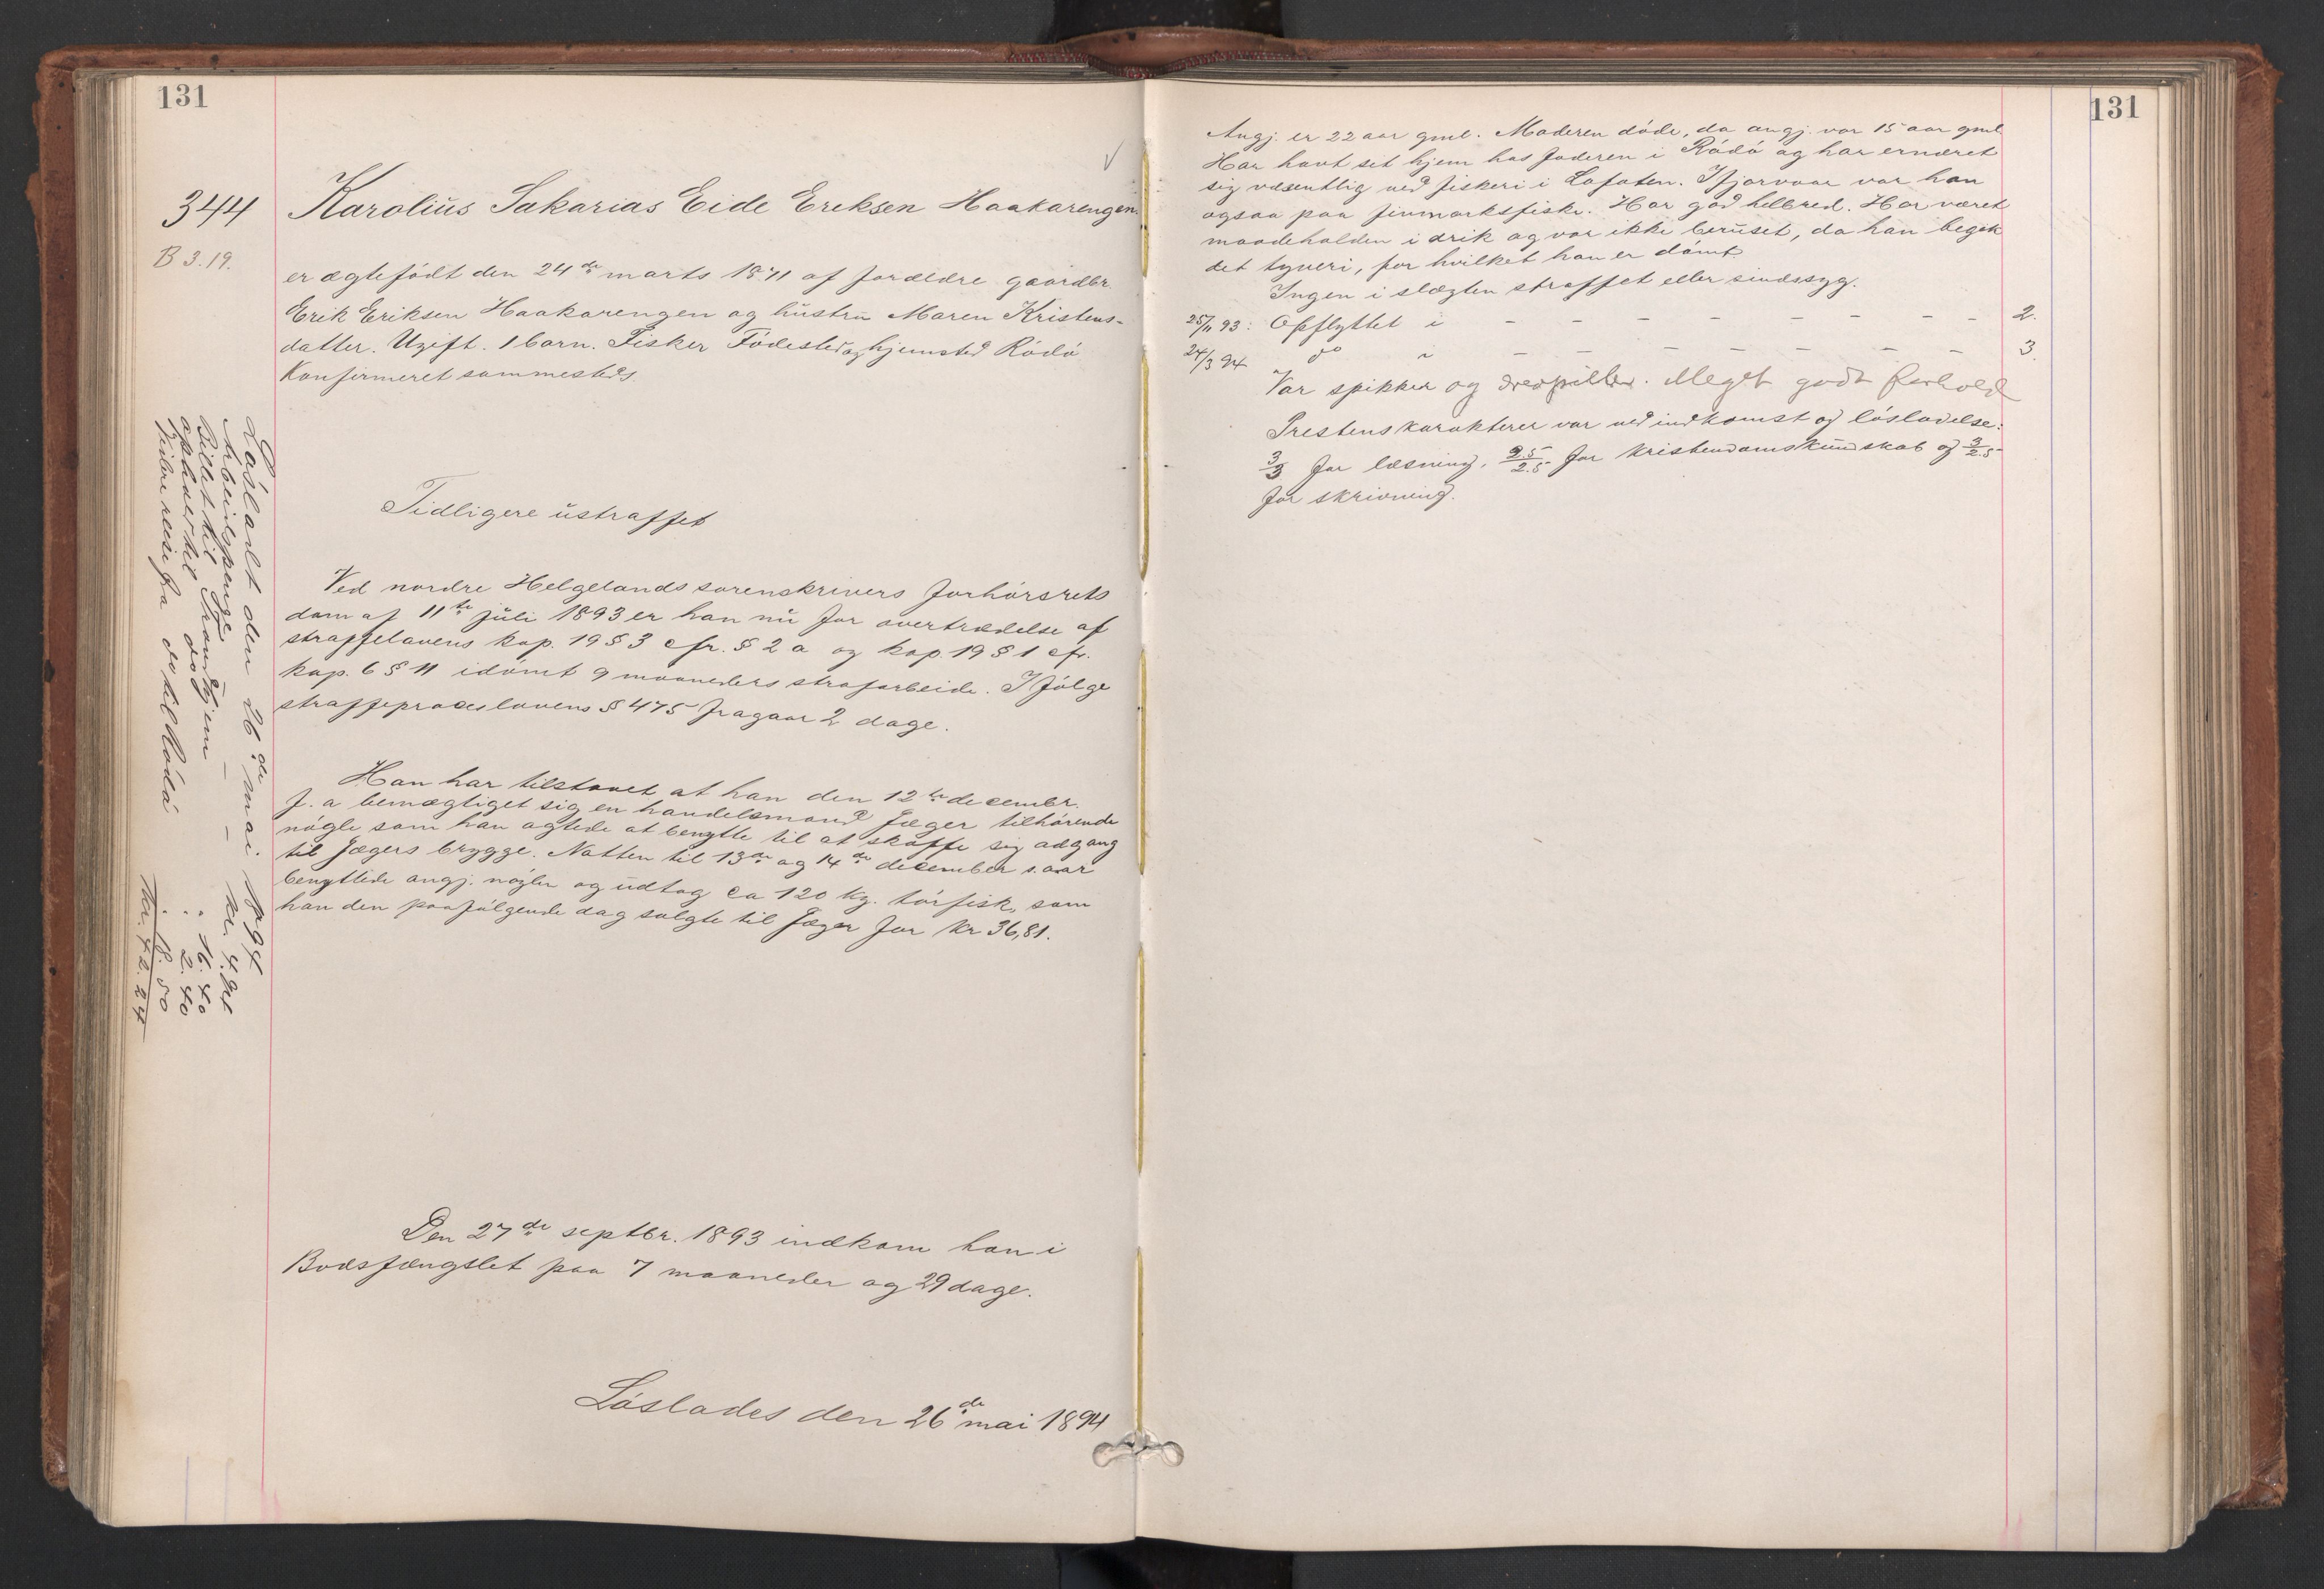 131
344
B 3.19.
Karolius Sakarias Eide Ereksen Haakarengen.
er ægtefødt den 24de marts 1871 af forældre gaardbr.
Erik Eriksen Haakarengen og hustru Maren Kristens-
datter. Ugift. 1 barn. Fisker Födested og hjemsted Rödö
Konfirmeret sammesteds
Tidligere ustraffet
Ved nordre Helgelands sorenskrivers forhörsrets
dom af 11te juli 1893 er han nu for overtrædelse af
straffelovens kap. 19 § 3 cfr. § 2 a og kap. 19 § 1 cfr.
kap. 6 § 11 idömt 9 maaneders strafarbeide. Ifölge
straffeproceslovens § 475 fragaar 2 dage.
Han har tilstaaet at han den 12te decembr.
f. a bemægtiget sig en handelsmand Jæger tilhörende
nögle som han agtede at benytte til at skaffe sig adgang
til Jægers brygge. Natten til 13de og 14de december s. aar
benyttede angj. nöglen og udtog ca 120 kg. törfisk, som
han den paafölgende dag solgte til Jæger for kr 36,81.
Den 27de septbr. 1893 indkom han i
Bodsfængslet paa 7 maaneder og 29 dage.
Löslades den 26de mai 1894
Lösladt den 26de mai 1894
Arbeidspenge — — kr.
Billet til Trondhjem " 16.40
ophold til do " 2.40
Videre reise fra do til Rödö " 8.50
kr. 42.24
131
Angj. er 22 aar gml. Moderen döde, da angj. var 15 aar gml
Har havt sit hjem hos faderen i Rödö og har ernæret
sig væsentlig ved fiskeri i Lofoten. Ifjorvaar var han
ogsaa paa finmarksfiske. Har god helbred. Har været
maadeholden i drik og var ikke beruset, da han begik
det tyveri, for hvilket han er dömt
Ingen i slægten straffet eller sindssyg.
25/11 93: Opflyttet i - - - - - - - - 2.
24/3 94 do i - - - - - - - 3.
Var spikker og Meget godt forhold
Prestens karakterer var ved indkomst og lösladelse:
3/3 for læsning, 2.5/2.5 for kristendomskundskab og 3/2.5
for skrivning.